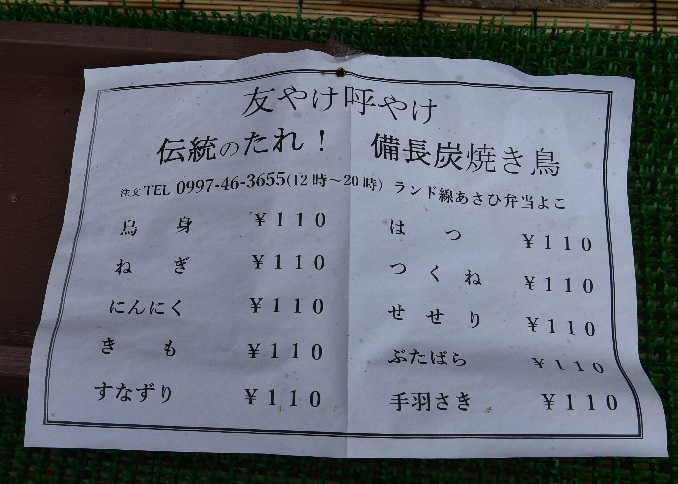 友やけ呼やけ
伝統のたれ！ 備長炭焼き鳥
注文TEL 0997-46-3655(12時～20時) ランド線あさひ弁当よこ
鳥身 ￥110
ねぎ ￥110
にんにく ￥110
きも ￥110
すなずり ￥110
はつ ￥110
つくね ￥110
せせり ￥110
ぶたばら ￥110
手羽さき ￥110